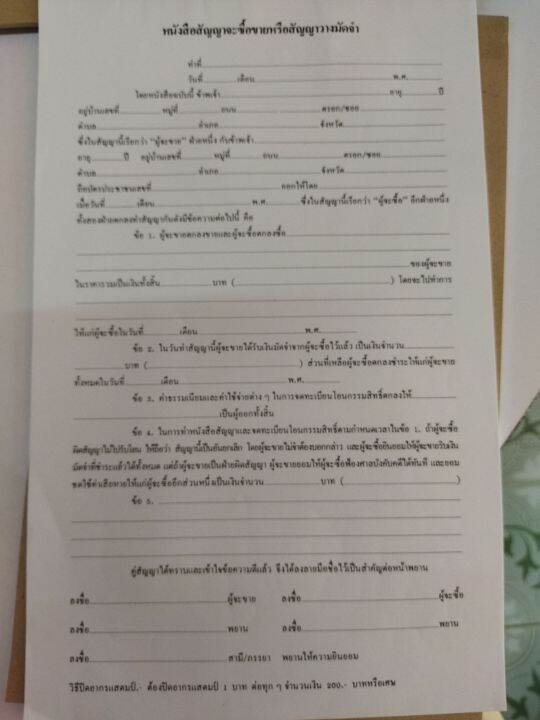 หนังสือสัญญาจะซื้อขายหรือสัญญาวางมัดจำ
ทำที่
วันที่ เดือน พ.ศ.
โดยหนังสือฉบับนี้ ข้าพเจ้า อายุ ปี
อยู่บ้านเลขที่ หมู่ที่ ถนน ตรอก/ซอย
ตำบล อำเภอ จังหวัด
ซึ่งในสัญญานี้เรียกว่า "ผู้จะขาย" ฝ่ายหนึ่ง กับข้าพเจ้า
อายุ ปี อยู่บ้านเลขที่ หมู่ที่ ถนน ตรอก/ซอย
ตำบล อำเภอ จังหวัด
ถือบัตรประชาชนเลขที่ ออกให้โดย
เมื่อวันที่ เดือน พ.ศ. ซึ่งในสัญญานี้เรียกว่า "ผู้จะซื้อ" อีกฝ่ายหนึ่ง
ทั้งสองฝ่ายตกลงทำสัญญากันดังมีข้อความต่อไปนี้ คือ
ข้อ 1. ผู้จะขายตกลงขายและผู้จะซื้อตกลงซื้อ
ของผู้จะขาย
ในราคารวมเป็นเงินทั้งสิ้น บาท ( ) โดยจะไปทำการ
ให้แก่ผู้จะซื้อในวันที่ เดือน พ.ศ.
ข้อ 2. ในวันทำสัญญานี้ผู้จะขายได้รับเงินมัดจำจากผู้จะซื้อไว้แล้ว เป็นเงินจำนวน
บาท ( ) ส่วนที่เหลือผู้จะซื้อตกลงชำระให้แก่ผู้จะขาย
ทั้งหมดในวันที่ เดือน พ.ศ.
ข้อ 3. ค่าธรรมเนียมและค่าใช้จ่ายต่าง ๆ ในการจดทะเบียนโอนกรรมสิทธิ์ตกลงให้
เป็นผู้ออกทั้งสิ้น
ข้อ 4. ในการทำหนังสือสัญญาและจดทะเบียนโอนกรรมสิทธิ์ตามกำหนดเวลาในข้อ 1. ถ้าผู้จะซื้อ
ผิดสัญญาไม่ไปรับโอน ให้ถือว่า สัญญานี้เป็นอันยกเลิก โดยผู้จะขายไม่จำต้องบอกกล่าว และผู้จะซื้อยินยอมให้ผู้จะขายริบเงิน
มัดจำที่ชำระแล้วได้ทั้งหมด แต่ถ้าผู้จะขายเป็นฝ่ายผิดสัญญา ผู้จะขายยอมให้ผู้จะซื้อฟ้องศาลบังคับคดีได้ทันที และยอม
ชดใช้ค่าเสียหายให้แก่ผู้จะซื้ออีกส่วนหนึ่งเป็นเงินจำนวน บาท ( )
ข้อ 5.
คู่สัญญาได้ทราบและเข้าใจข้อความดีแล้ว จึงได้ลงลายมือชื่อไว้เป็นสำคัญต่อหน้าพยาน
ลงชื่อ ผู้จะขาย ลงชื่อ ผู้จะซื้อ
ลงชื่อ พยาน ลงชื่อ พยาน
ลงชื่อ สามี/ภรรยา พยานให้ความยินยอม
วิธีปิดอากรแสตมป์.- ต้องปิดอากรแสตมป์ 1 บาท ต่อทุก ๆ จำนวนเงิน 200.- บาทหรือเศษ